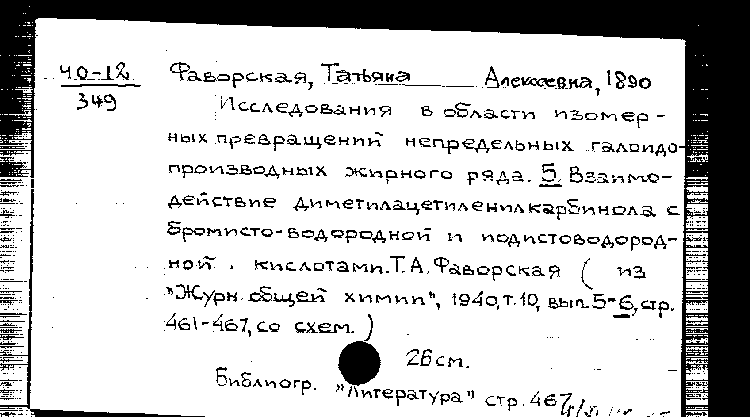 40-12
349
Фаворская, Татьяна Алексеевна, 1890
Исследования в области изомер-
ных превращений непредельных галоидо-
производных жирного ряда. 5. Взаимо-
действие диметилацетиленилкарбинола с
бромисто-водородной и иодистоводород-
ной кислотами. Т.А. Фаворская (из
"Журн. общей химии", 1940, т.10, вып. 5-6, стр.
461-467, со схем.)
26 см.
Библиогр. "Литература" стр. 467